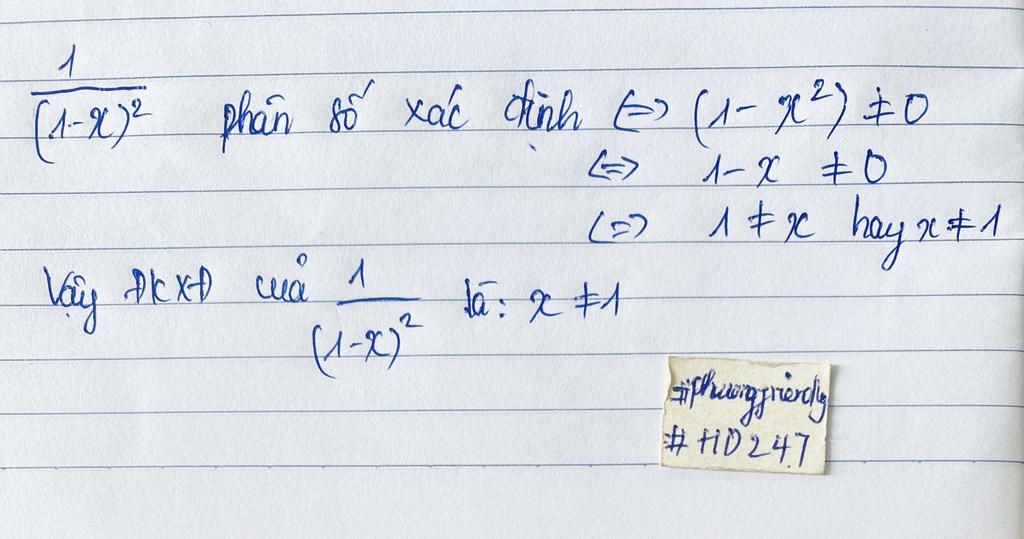 1/(1-x)² phân số xác định <=> (1-x²) ≠ 0
<=> 1-x ≠ 0
<=> 1 ≠ x hay x ≠ 1
Vậy ĐKXĐ cuả 1/(1-x)² là: x ≠ 1
#phuongfriendly
#HD247